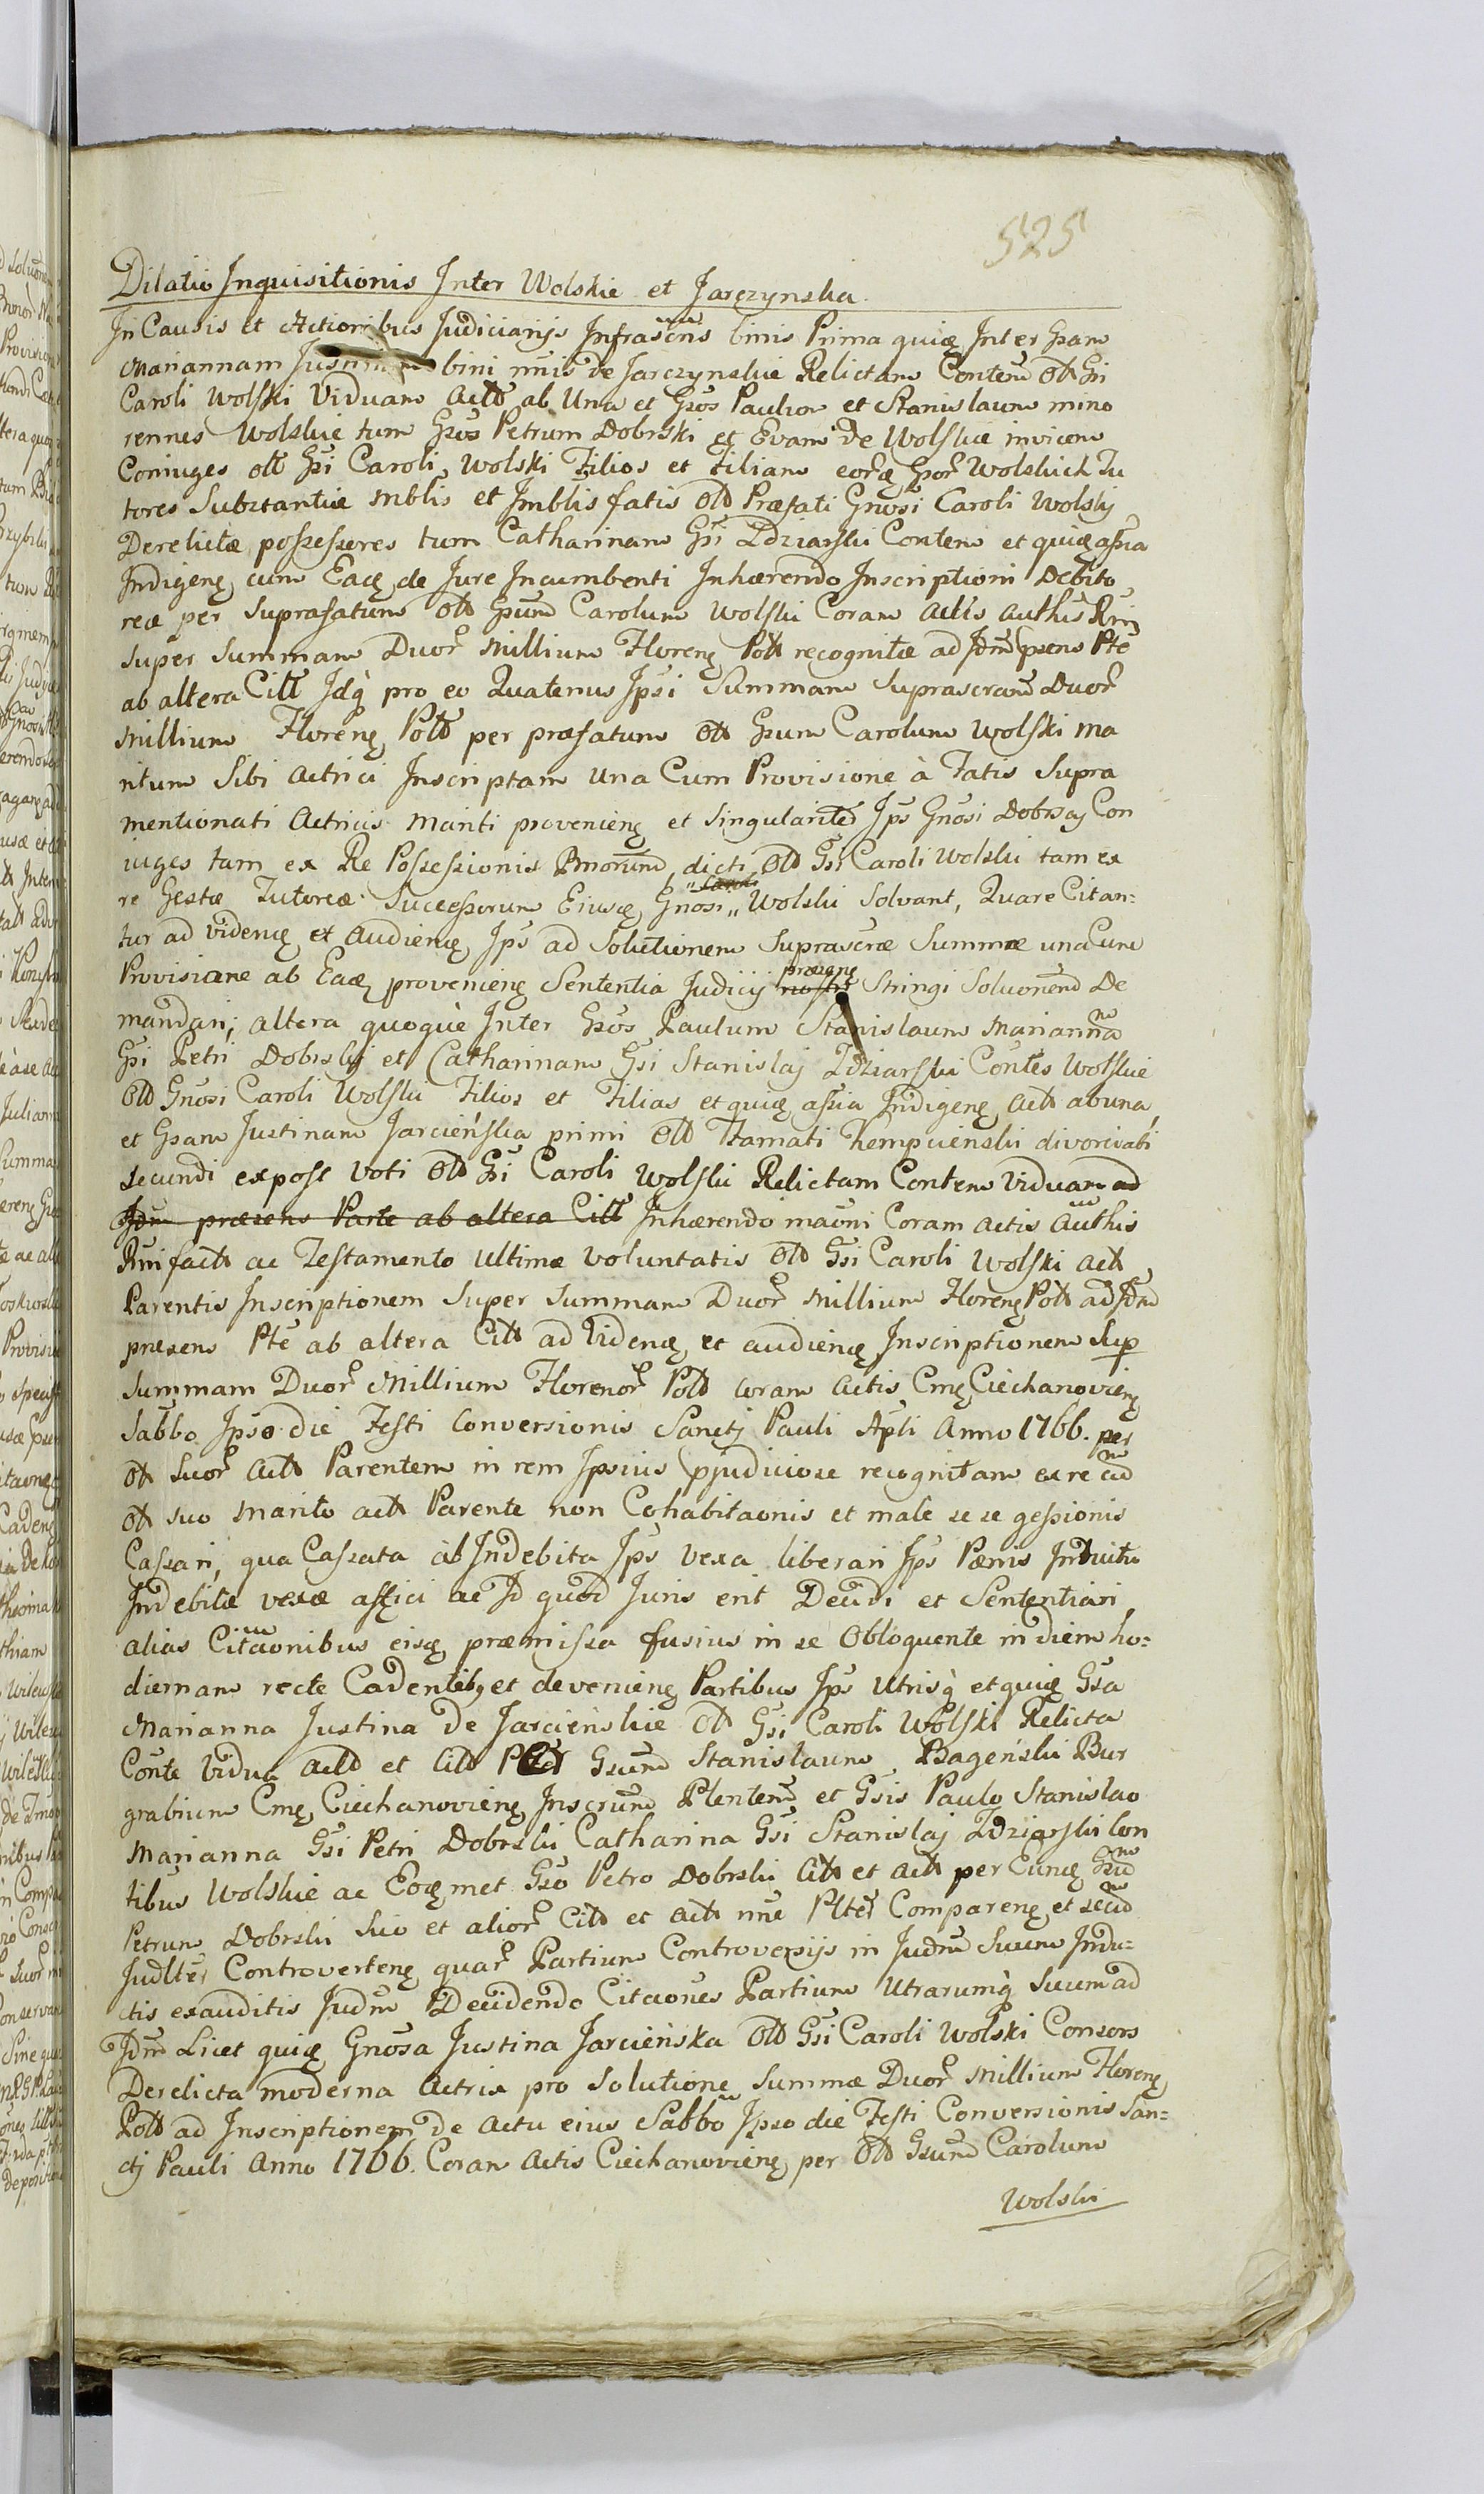 525
Dilatio Inquisitionis Inter Wolskie et Jarczynska
In Causis et Actionibus Judiciarijs Infrascris binis Prima quidę Inter Gsam
Mariannam bini nnis de Jarczynskie Relictam Contem Olt Gsi
Caroli Wolski Viduam Actt ab Una et Gsos Paulum et Stanislaum mino
rennes Wolskie tum Gsos Petrum Dobrski et Evam de Wolskie invicem
Coniuges olt Gsi Caroli Wolski Filios et Filiam eorq Gsor Wolskich Tu
tores Substantiæ mblis et Imblis fatis Olt Præfati Gnosi Caroli Wolskj
Derelictæ possessores tum Catharinam Gsi Zdziarski Contem et quidę assia
Indigenę cum Eadę de Jure Incumbenti Inhærendo Inscriptioni Debito
reæ per suprafatum Olt Gsum Carolum Wolski Coram Actis Authis Rnij
super summam Duor Millium Floreng Polt recognitæ ad Idm psens Pte
ab altera Citt Idq pro eo Quatenus Ipsi Summam suprascram Duor
Millium Floreng Polt per præfatum Olt Gsum Carolum Wolski ma
ritum sibi Actrici Inscriptam una Cum Provisione à Fatis supra
mentionati Actricis mariti provenieng et singulariter Ips Gnosi Dobrscy Con
iuges tam ex Re Possessionis Bonorum dicti Olt Gsi Caroli Wolski tam ex
re Gestæ Tutoreæ Successorum Eiusdę Gnosi Wolski solvant, Quare Citan=
tur ad Videndę et Audiendę Ips ad Solutionem suprascræ Summæ una Cum
Provisione ab Eadę provenieng Sententia Judicij nostri præseng Stringi Soluonemd De
mandari; altera quoque Inter Gsos Paulum Stanislaum Marianna
Gsi Petri Dobrski et Catharinam Gsi Stanislaj Zdziarski Contes Wolskie
Olt Gnosi Caroli Wolski Filios et Filias et quidę assia Indigenę Actt ab una
et Gsam Justinam Jarcieńska primi Olt Kempcienski divorciati
secundi expost voti Olt Gsi Caroli Wolski Relictam Contem Viduam ad
Idm præsens Parte ab altera Citt Inhærendo Coram Actis Authis
Rnij factt ac Testamento ultimæ voluntatis Olt Gsi Caroli Wolski actt
Parentis Inscriptionem super Summam Duor Millium Floreng Polt ad Idm
præsens Pte ab altera Citt ad Videndę et audiendę Inscriptionem sup
summam Duor Millium Florenor Polt coram Actis Cmę Ciechanovieng
Sabbo Ipso die Festi Conversionis Sancti Pauli Apli Anno 1766. per
Olt suor Actt Parentem in rem Ipsius pjudiciose recognitam ex re cum
Olt suo marito actt Parente non Cohabitaonis et male se se gessionis
Cassari, qua Cassata ab Indebita Ips vexa liberari Ips Pænis Intuitu
Indebitæ vexæ affici ac Id quod Juris erit Decidi et Sententiari
alias Citaonibus eisdę præmissa fusius in se Obloquente in diem ho=
diernam recte Cadentibg et devenieng Partibus Ips Utrisq et quidę Gsa
Marianna Justina de Jarcieńskie Olt Gsi Caroli Wolski Relicta
Conte Vidua Actt et Citt Per Gsum Stanislaum Bageński Bur
grabium Cmę Ciechanovieng Inscrum Plentem et Gsis Paulo Stanislao
Marianna Gsi Petri Dobrski Catharina Gsi Stanislaj Zdziarski Con
tibus Wolskie ac Eodę met Gso Petro Dobrski Citt et actt per Eundę Gsum
Petrum Dobrski suo et alior Citt et actt nne Plter Compareng et secum
Judlter Controverteng quar Partium Controversijs in Judm suum Indu=
ctis exauditis Judm Decidendo Citaones Partium Utrarumq suum ad
Idm Licet quidę Gnosa Justina Jarcieńska Olt Gsi Caroli Wolski Consors
Derelicta moderna Actrix pro solutione Summæ Duor Millium Floreng
Polt ad Inscriptionem de Actu eius Sabbo Ipso die Festi Conversionis San=
ctj Pauli Anno 1766. Coram Actis Ciechanovieng per Olt Gsum Carolum
Wolski